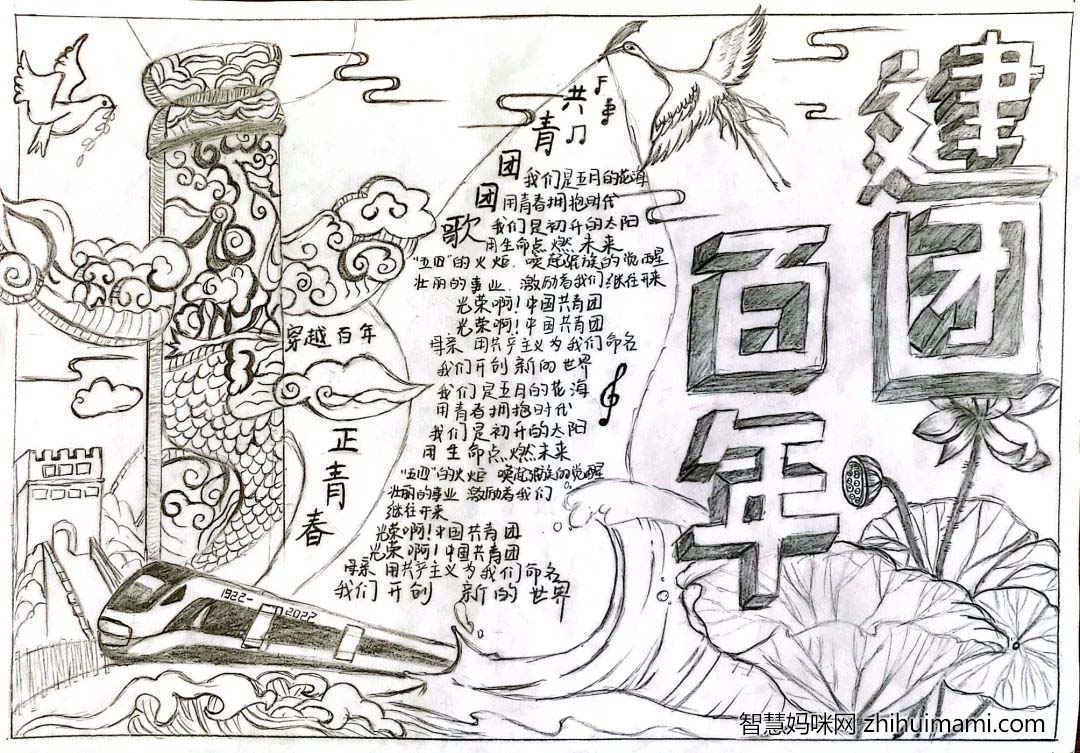 建团
百年
共青团团歌
我们是五月的花海
用青春拥抱时代
我们是初升的太阳
用生命点燃未来
“五四”的火炬.唤起民族的觉醒
壮丽的事业.激励着我们继往开来
光荣啊!中国共青团
光荣啊!中国共青团
母亲 用共产主义为我们命名
我们开创新的世界
我们是五月的花海
用青春拥抱时代
我们是初升的太阳
用生命点燃未来
“五四”的火炬 唤起民族的觉醒
壮丽的事业 激励着我们
继往开来
光荣啊!中国共青团
光荣啊!中国共青团
母亲 用共产主义为我们命名
我们开创 新的世界
穿越百年
正青春
1922-2022
智慧妈咪网 zhihuimami.com